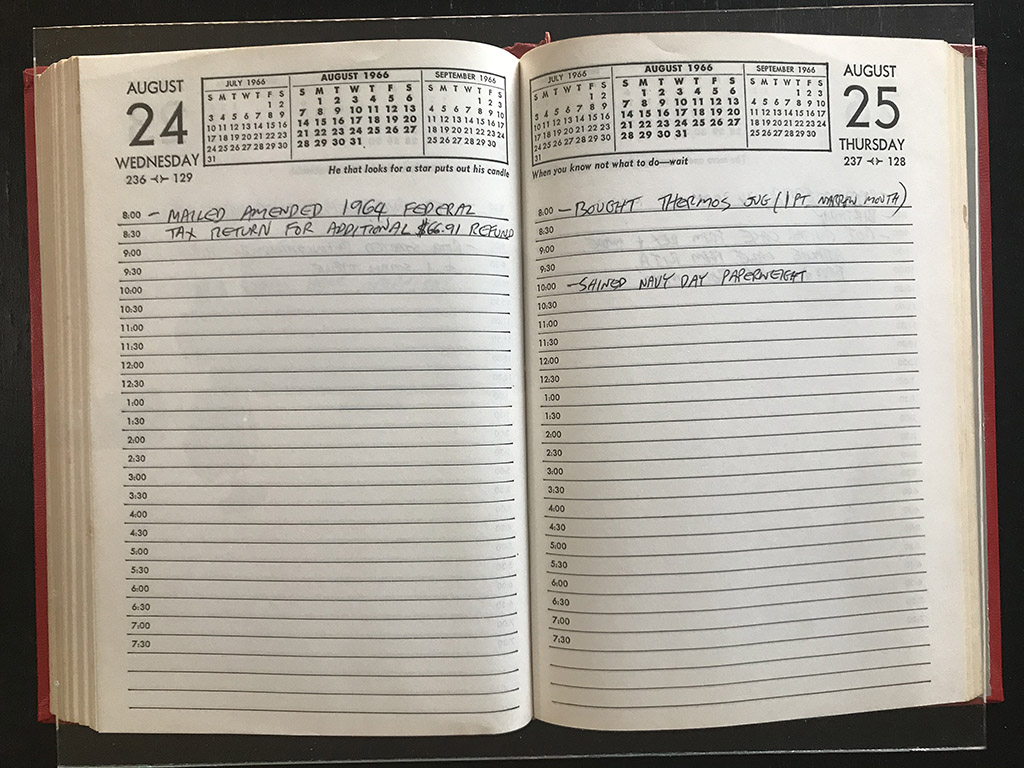 AUGUST
24
WEDNESDAY
236 -<>- 129
JULY 1966
S M T W T F S
1 2
3 4 5 6 7 8 9
10 11 12 13 14 15 16
17 18 19 20 21 22 23
24 25 26 27 28 29 30
31
AUGUST 1966
S M T W T F S
1 2 3 4 5 6
7 8 9 10 11 12 13
14 15 16 17 18 19 20
21 22 23 24 25 26 27
28 29 30 31
SEPTEMBER 1966
S M T W T F S
1 2 3
4 5 6 7 8 9 10
11 12 13 14 15 16 17
18 19 20 21 22 23 24
25 26 27 28 29 30
He that looks for a star puts out his candle
8:00 – MAILED AMENDED 1964 FEDERAL
8:30 TAX RETURN FOR ADDITIONAL $66.91 REFUND
9:00
9:30
10:00
10:30
11:00
11:30
12:00
12:30
1:00
1:30
2:00
2:30
3:00
3:30
4:00
4:30
5:00
5:30
6:00
6:30
7:00
7:30
JULY 1966
S M T W T F S
1 2
3 4 5 6 7 8 9
10 11 12 13 14 15 16
17 18 19 20 21 22 23
24 25 26 27 28 29 30
31
AUGUST 1966
S M T W T F S
1 2 3 4 5 6
7 8 9 10 11 12 13
14 15 16 17 18 19 20
21 22 23 24 25 26 27
28 29 30 31
SEPTEMBER 1966
S M T W T F S
1 2 3
4 5 6 7 8 9 10
11 12 13 14 15 16 17
18 19 20 21 22 23 24
25 26 27 28 29 30
AUGUST
25
THURSDAY
237 -<>- 128
When you know not what to do—wait
8:00 – BOUGHT THERMOS JUG (1 PT NARROW MOUTH)
8:30
9:00
9:30
10:00 – SHINED NAVY DAY PAPERWEIGHT
10:30
11:00
11:30
12:00
12:30
1:00
1:30
2:00
2:30
3:00
3:30
4:00
4:30
5:00
5:30
6:00
6:30
7:00
7:30